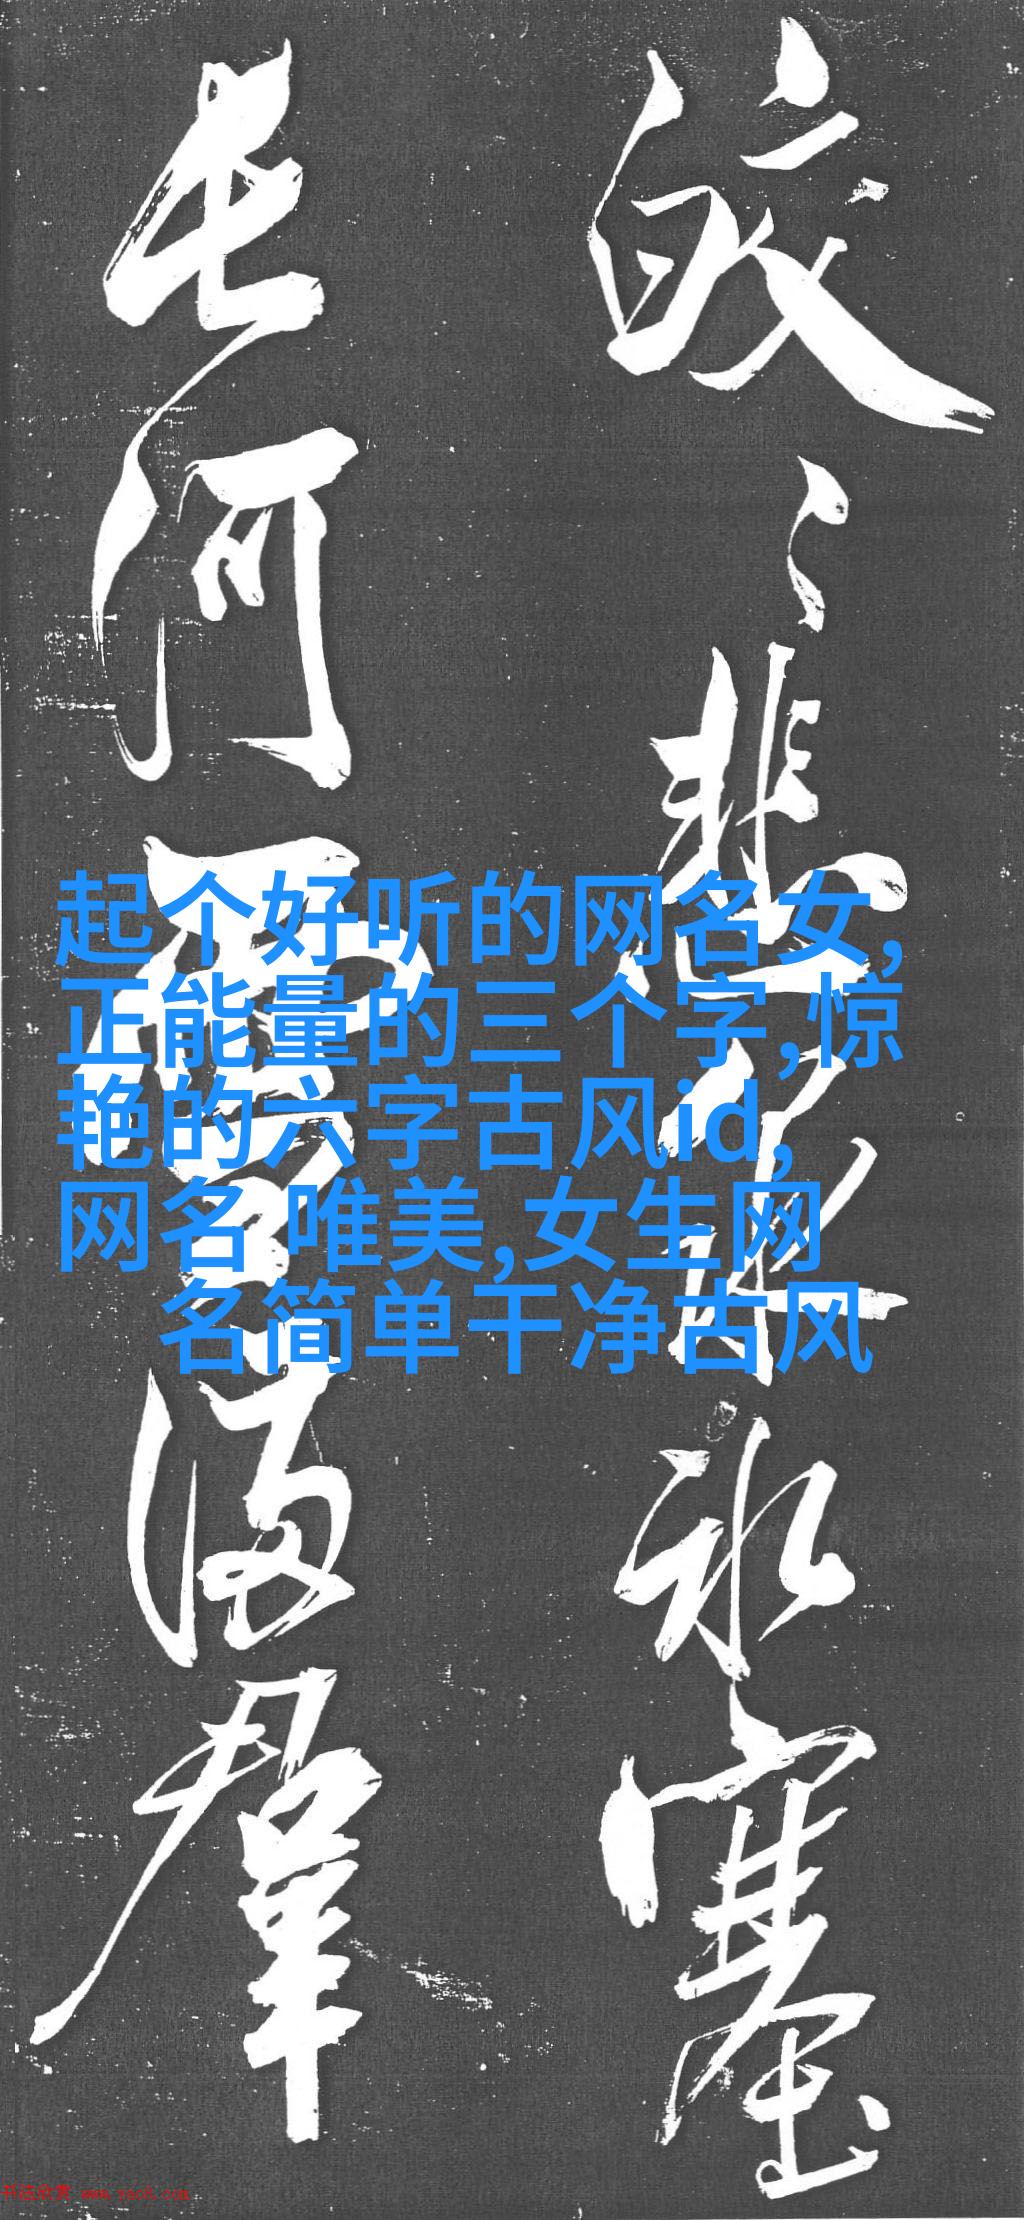 皎〻悲
氷塞
長河雪滿群
起个好听的网名女,
正能量的三个字,惊
艳的六字古风id,
网名 唯美,女生网
名简单干净古风
书法欣赏 www.yac8.com